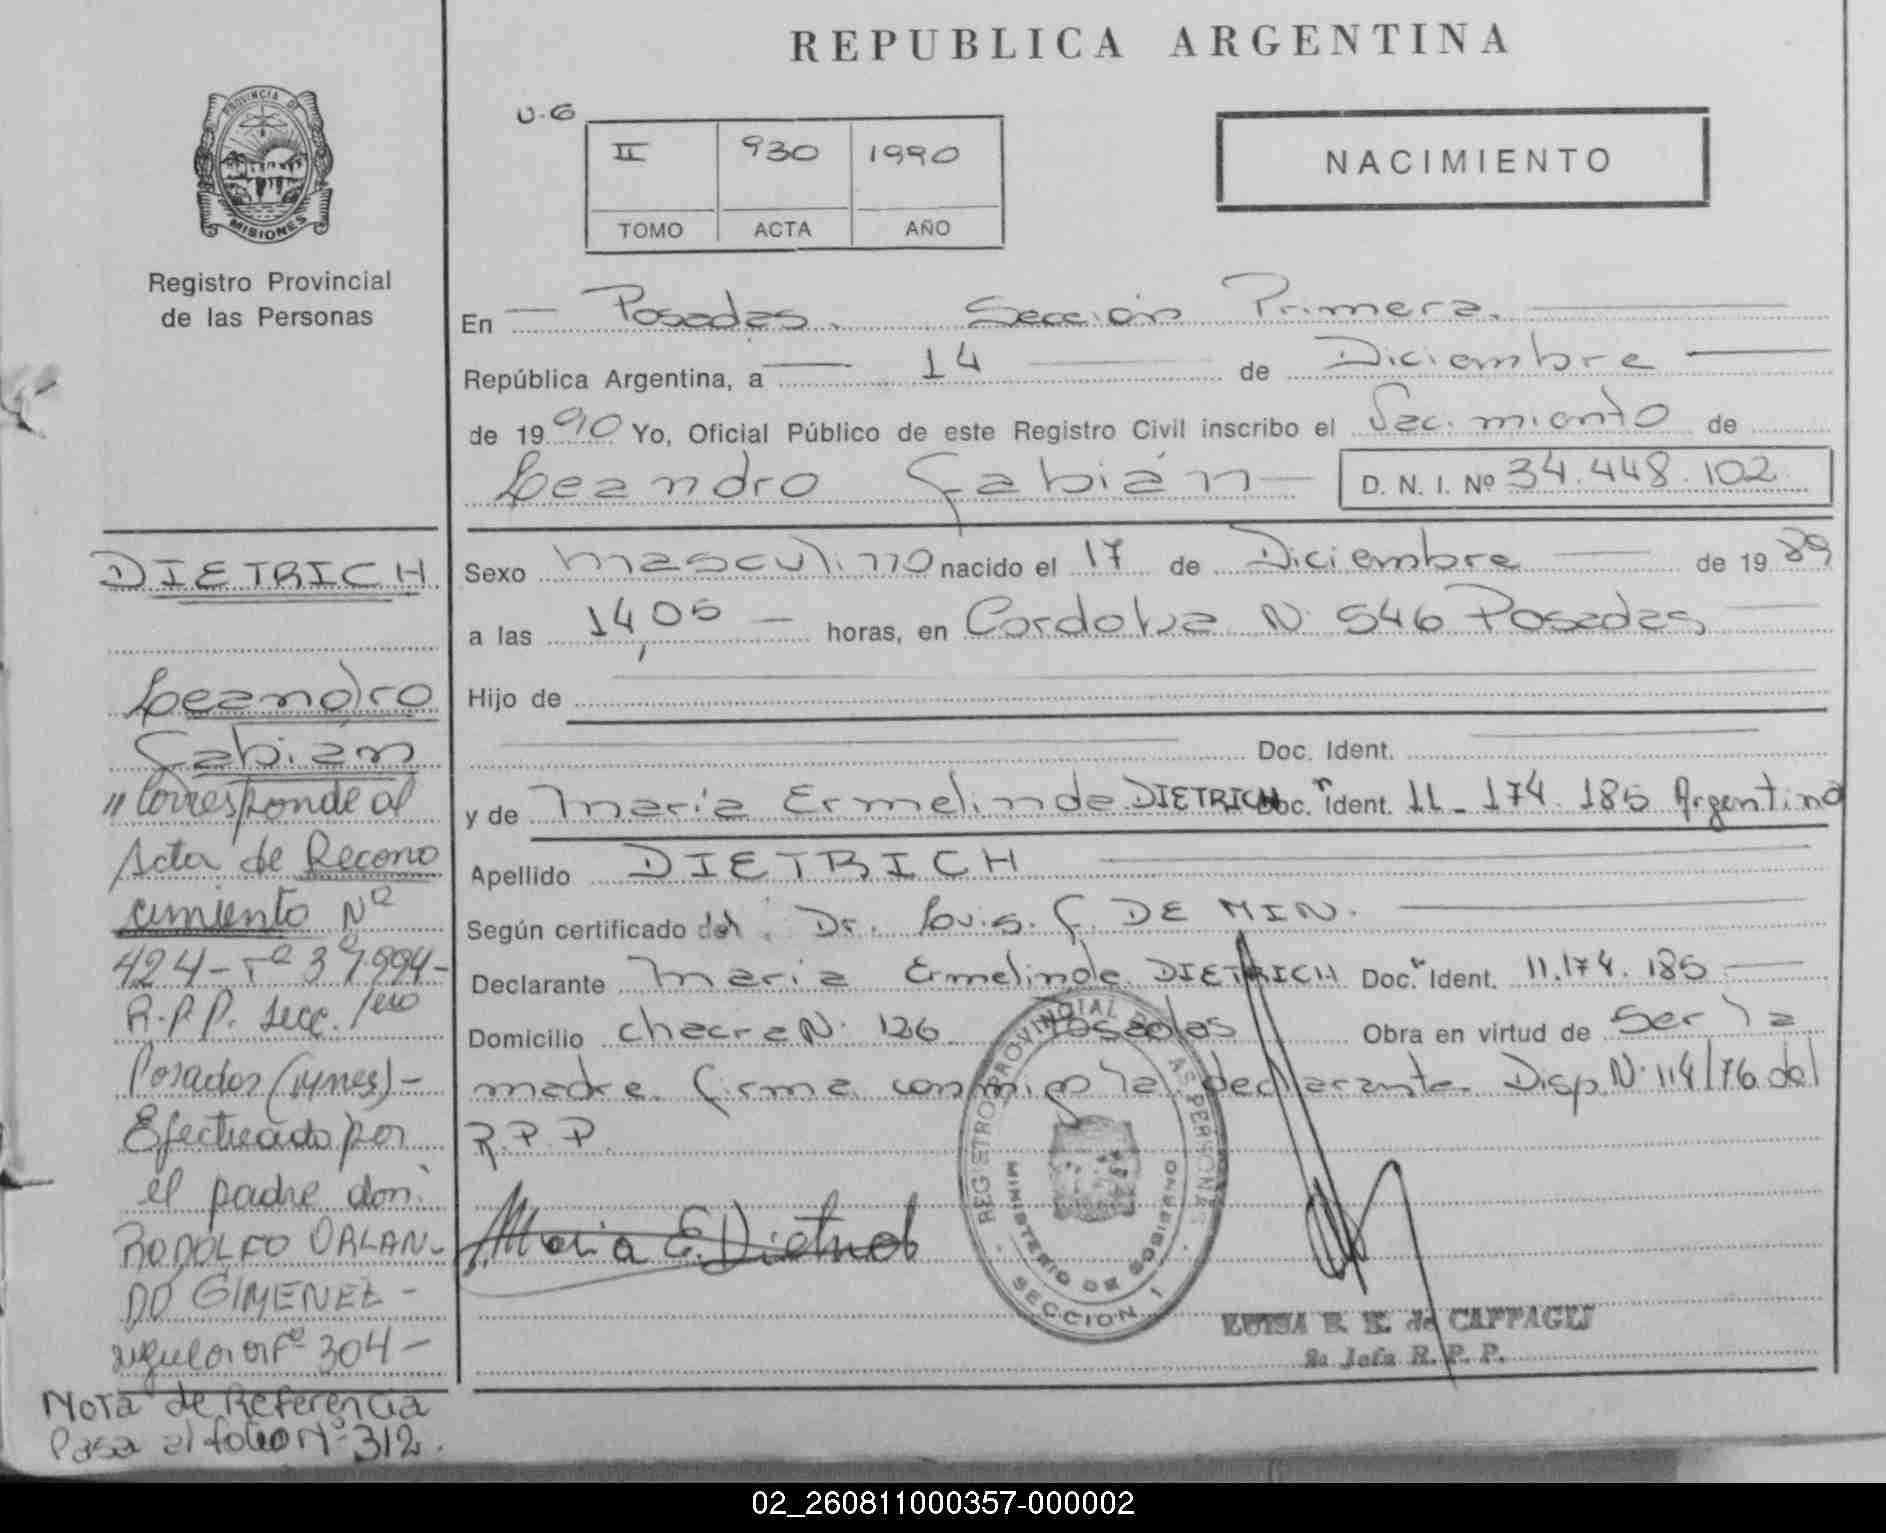 REPUBLICA ARGENTINA
PROVINCIA DE
MISIONES
Registro Provincial
de las Personas
U-6
II 930 1990
TOMO ACTA AÑO
NACIMIENTO
En Posadas. Sección Primera.
República Argentina, a 14 de Diciembre
de 1990 Yo, Oficial Público de este Registro Civil inscribo el Nacimiento de
Leandro Fabián D. N. I. Nº 34.448.102
Sexo masculino nacido el 17 de Diciembre de 1989
a las 14,05 horas, en Cordoba N. 546 Posadas
Hijo de
Doc. Ident.
y de Maria Ermelinda DIETRICH Doc. Ident. 11-174.185 Argentina
Apellido DIETRICH
Según certificado del Dr. Luis. F. DE MIN.
Declarante Maria Ermelinda DIETRICH Doc. Ident. 11.174.185
Domicilio chacra N. 126 Posadas Obra en virtud de Ser la
madre firma conmigo la declarante Disp. N. 114/76 del
R.P.P.
Maria E. Dietrich
REGISTRO PROVINCIAL DE LAS PERSONAS
MINISTERIO DE GOBIERNO
SECCION 1
LUISA E. E. de CAPPAGLI
2a Jefa R. P. P.
DIETRICH
Leandro
Fabián
"Corresponde al
Acta de Recono
cimiento Nº
424-Tº 3º 1994-
R.P.P. secc. 1era
Posadas (mnes)-
Efectuado por
el padre don:
RODOLFO ORLAN-
DO GIMENEZ-
304-
Nota de Referencia
Pasa al folio Nº 312.
02_260811000357-000002